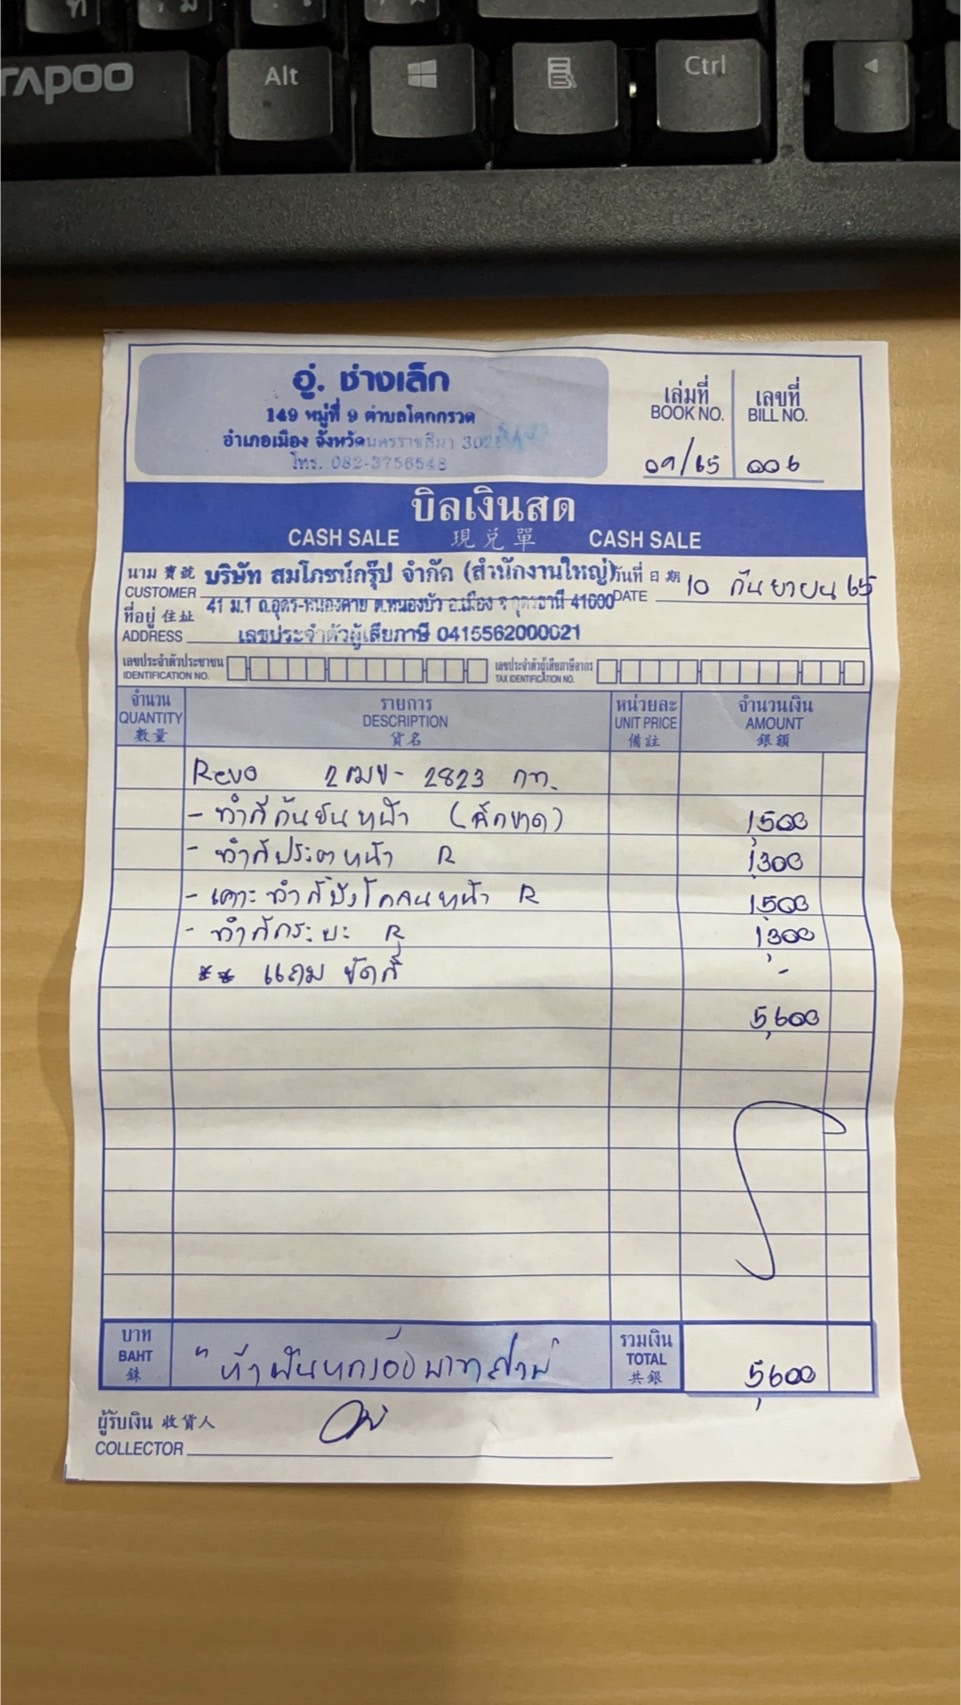 RAPOO
Alt
Ctrl
อู่. ช่างเล็ก
149 หมู่ที่ 9 ตำบลโคกกรวด
อำเภอเมือง จังหวัดนครราชสีมา
โทร. 082-3756548
เล่มที่ เลขที่
BOOK NO. BILL NO.
09/65 006
บิลเงินสด
CASH SALE 現兌單 CASH SALE
นาม 寶號 บริษัท สมโภชน์กรุ๊ป จำกัด (สำนักงานใหญ่) วันที่ 日期 10 กันยายน 65
CUSTOMER DATE
ที่อยู่ 住址 41 ม.1 ถ.อุดร-หนองคาย ต.หนองบัว อ.เมือง จ.อุดรธานี 41000
ADDRESS เลขประจำตัวผู้เสียภาษี 0415562000021
เลขประจำตัวประชาชน เลขประจำตัวผู้เสียภาษีอากร
IDENTIFICATION NO. TAX IDENTIFICATION NO.
จำนวน รายการ หน่วยละ จำนวนเงิน
QUANTITY DESCRIPTION UNIT PRICE AMOUNT
數量 貨名 備註 銀額
Revo 2ฒข-2823 กท.
- ทำสีกันชนหน้า 1,500
- ทำสีประตูหน้า R 1,300
- เคาะทำสีบังโคลนหน้า R 1,500
- ทำสีกระบะ R 1,300
** แถม ขัดสี -
5,600
บาท รวมเงิน
BAHT "ห้าพันหกร้อยบาทถ้วน" TOTAL 5,600
銖 共銀
ผู้รับเงิน 收貨人
COLLECTOR